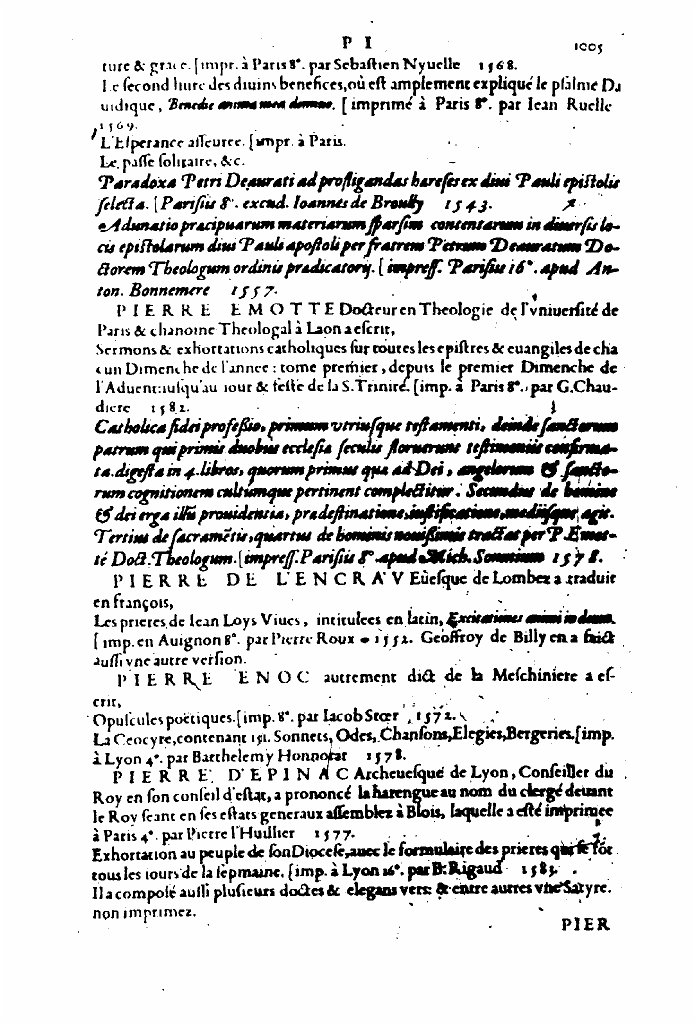 P I 1005
ture & grace. [impr. à Paris 8°. par Sebastien Nyuelle 1568.
Le second liure des diuins benefices, où est amplement expliqué le psalme Da
uidique, Benedic anima mea domino. [ imprimé à Paris 8°. par Iean Ruelle
1569.
L'Esperance asseuree. [impr. à Paris.
Le passe solitaire, &c.
Paradoxa Petri Deaurati ad profligandas hæreses ex diui Pauli epistolis
selecta. [ Parisiis 8°. excud. Ioannes de Brouilly 1543.
Adunatio præcipuarum materiarum sparsim contentarum in diuersis lo-
cis epistolarum diui Pauli apostoli per fratrem Petrum Deauratum Do-
ctorem Theologum ordinis prædicatorij. [ impress. Parisiis 16°. apud An-
ton. Bonnemere 1557.
PIERRE EMOTTE Docteur en Theologie de l'vniuersité de
Paris & chanoine Theologal à Laon a escrit,
Sermons & exhortations catholiques sur toutes les epistres & euangiles de cha
cun Dimenche de l'annee : tome premier, depuis le premier Dimenche de
l'Aduent iusqu'au iour & feste de la S. Trinité. [imp. à Paris 8°., par G. Chau-
diere 1582.
Catholica fidei professio, primum vtriusque testamenti, deinde sanctorum
patrum qui primis duobus ecclesiæ seculis floruerunt testimoniis confirma-
ta. digesta in 4. libros, quorum primus quæ ad Dei, angelorum & sancto-
rum cognitionem cultúmque pertinent complectitur. Secundus de homine
& dei erga illū prouidentia, prædestinatione, iustificatione, mediisque, agit.
Tertius de sacramētis, quartus de hominis nouissimis tractat per P. Emot-
té Doct. Theologum. [impress. Parisiis 8°. apud Mich. Sonnium 1578.
PIERRE DE L'ENCRAV Euesque de Lombez a traduit
en françois,
Les prieres de Iean Loys Viues, intitulees en latin, Excitationes animi in deum.
[ imp. en Auignon 8°. par Pierre Roux 1552. Geoffroy de Billy en a faict
aussi vne autre version.
PIERRE ENOC autrement dict de la Meschiniere a es-
crit,
Opuscules poëtiques. [imp. 8°. par Iacob Stœr 1572.
La Ceocyre, contenant 151. Sonnets, Odes, Chansons, Elegies, Bergeries. [imp.
à Lyon 4°. par Barthelemy Honnorat 1578.
PIERRE D'EPINAC Archeuesque de Lyon, Conseiller du
Roy en son conseil d'estat, a prononcé la harengue au nom du clergé deuant
le Roy seant en ses estats generaux assemblez à Blois, laquelle a esté imprimee
à Paris 4°. par Pierre l'Huillier 1577.
Exhortation au peuple de son Diocese, auec le formulaire des prieres qui se fōt
tous les iours de la sepmaine. [imp. à Lyon 16°. par B. Rigaud 1583.
Il a composé aussi plusieurs doctes & elegans vers: & entre autres vne Satyre.
non imprimez.
PIER